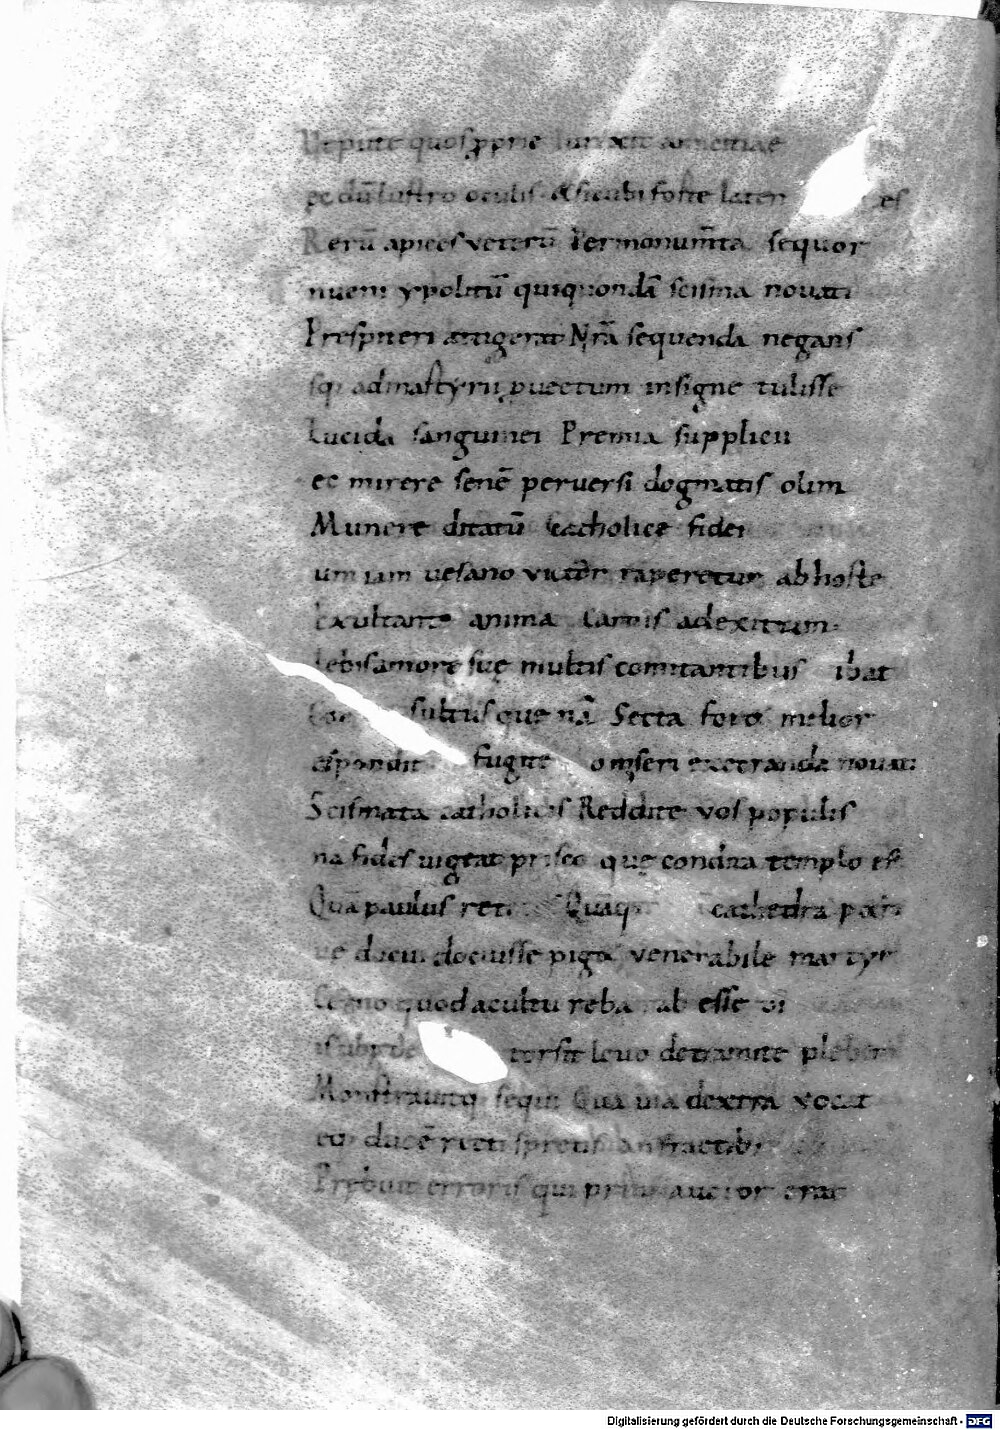 Ut put̄ quos ꝓprie iunxit amicitiae
ec dū lustro oculis & sicubi forte laten es
Rerū apices veterū Per monum̄ta sequor
nueni ypolitū qui quondā scisma nouati
Presp̄iteri attigerat Nr̄a sequenda negans
sq; ad mastyriı ꝓuectum insigne tulisse
Lucida sanguinei Premia supplicii
ec mirere senē perversi dogmatis olim
Munere ditatū Catholice fidei
um iam uesano victor raperetur ab hoste
Exultante anima Carnis ad exitium
lebis amore suę multis comitantibus ibat
Con sultus que nā Secta foret melior
espondit fugite o miseri execranda nouati
Scismata catholicis Reddite vos populis
na fides uigeat prisco quę condita templo est
Quā paulus ret Quāq; cathedra petri
ue docui docuisse piget venerabile martyr
Cerno quod a cultu rebar ab esse di
is ubi de torsit leuo de tramite plebem
Monstrauitq; sequi Qua uia dextra vocat
eq; ducē recti spretis anfractib;
Prębuit erroris qui prius auctor erat
Digitalisierung gefördert durch die Deutsche Forschungsgemeinschaft - DFG